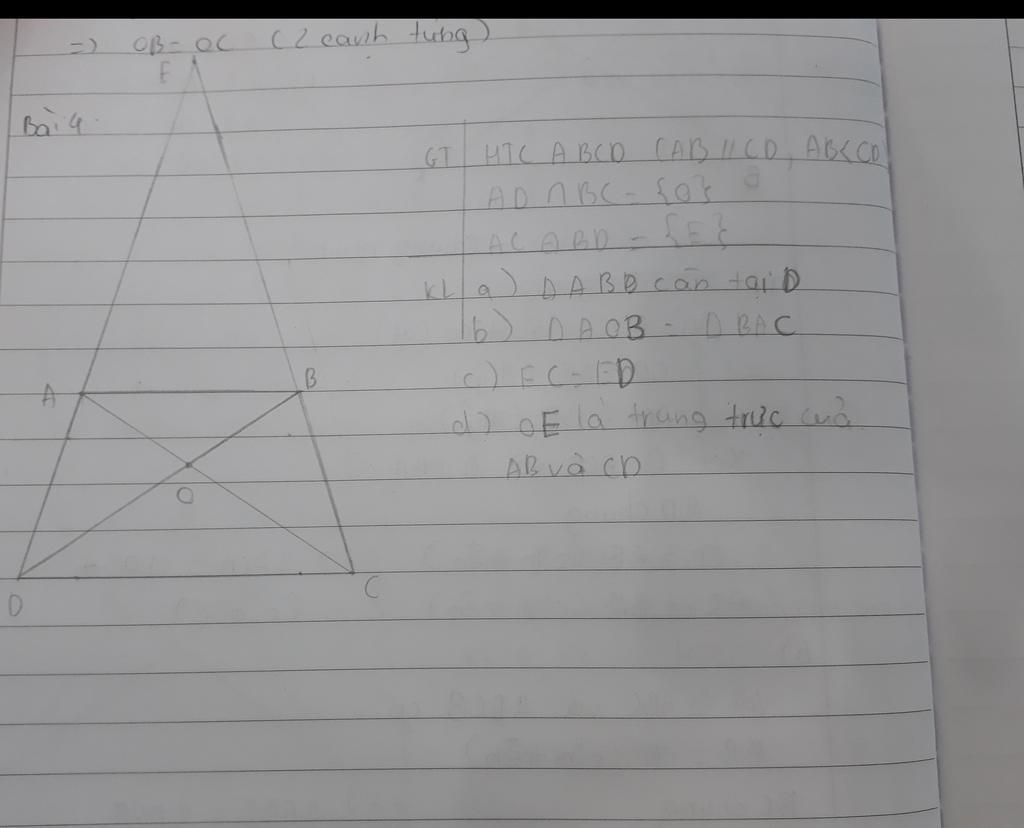 =) OB = OC (2 cạnh tưng)
E
Bài 4
GT HTC ABCD (AB // CD, AB<CD
AD ∩ BC = {O}
AC ∩ BD = {E}
KL a) Δ ABD cân tại D
b) Δ AOB = Δ BAC
A
B
c) EC = ED
d) OE là trung trực của
AB và CD
O
D
C